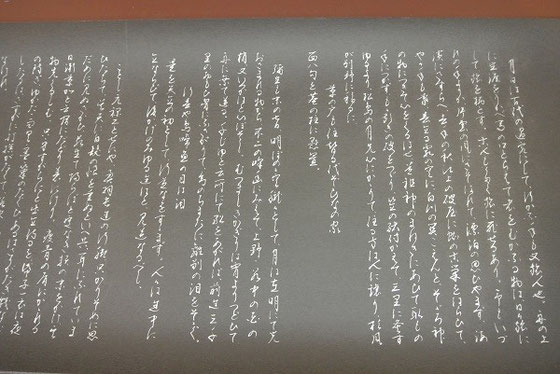 月日は百代の過客にして行かふ年も又旅人也舟の上
に生涯をうかへ馬の口とらえて老をむかふる物は日々旅に
して旅を栖とす古人も多く旅に死せるあり予もいつ
れの年よりか片雲の風にさそはれて漂泊の思ひやます海
浜にさすらへ去年の秋江上の破屋に蜘の古巣をはらひて
やゝ年も暮春立る霞の空に白川の関こえんとそゝろ神
の物につきて心をくるはせ道祖神のまねきにあひて取もの
手につかすもゝ引の破をつゝり笠の緒付かえて三里に灸す
ゆるより松島の月先心にかゝりて住る方は人に譲り杉風
か別墅に移るに
草の戸も住替る代そひなの家
面八句を庵の柱に懸置
弥生も末の七日明ほのゝ空朧々として月は在明にて光
おさまれる物から不二の峰幽にみえて上野谷中の花の
梢又いつかはと心ほそしむつましきかきりは宵よりつとひて
舟に乗て送る千しゆと云所にて船をあかれは前途三千
里のおもひ胸にふさかりて幻のちまたに離別の泪をそゝく
行春や鳥啼魚の目は泪
是を矢立の初として行道なをすゝます人々は途中に
立ならひて後かけのみゆる迄はと見送なるへし
ことし元禄二とせにや奥羽長途の行脚只かりそめに思
ひたちて呉天に白髪の恨を重ぬといへ共耳にふれていま
ために見ぬさかひ若生て帰らはと定なき頼の末をかけ其
日漸早加と云宿にたとり着にけり痩骨の肩にかゝれる
物先くるしむ只身すからにと出立侍るを帋子一衣は夜